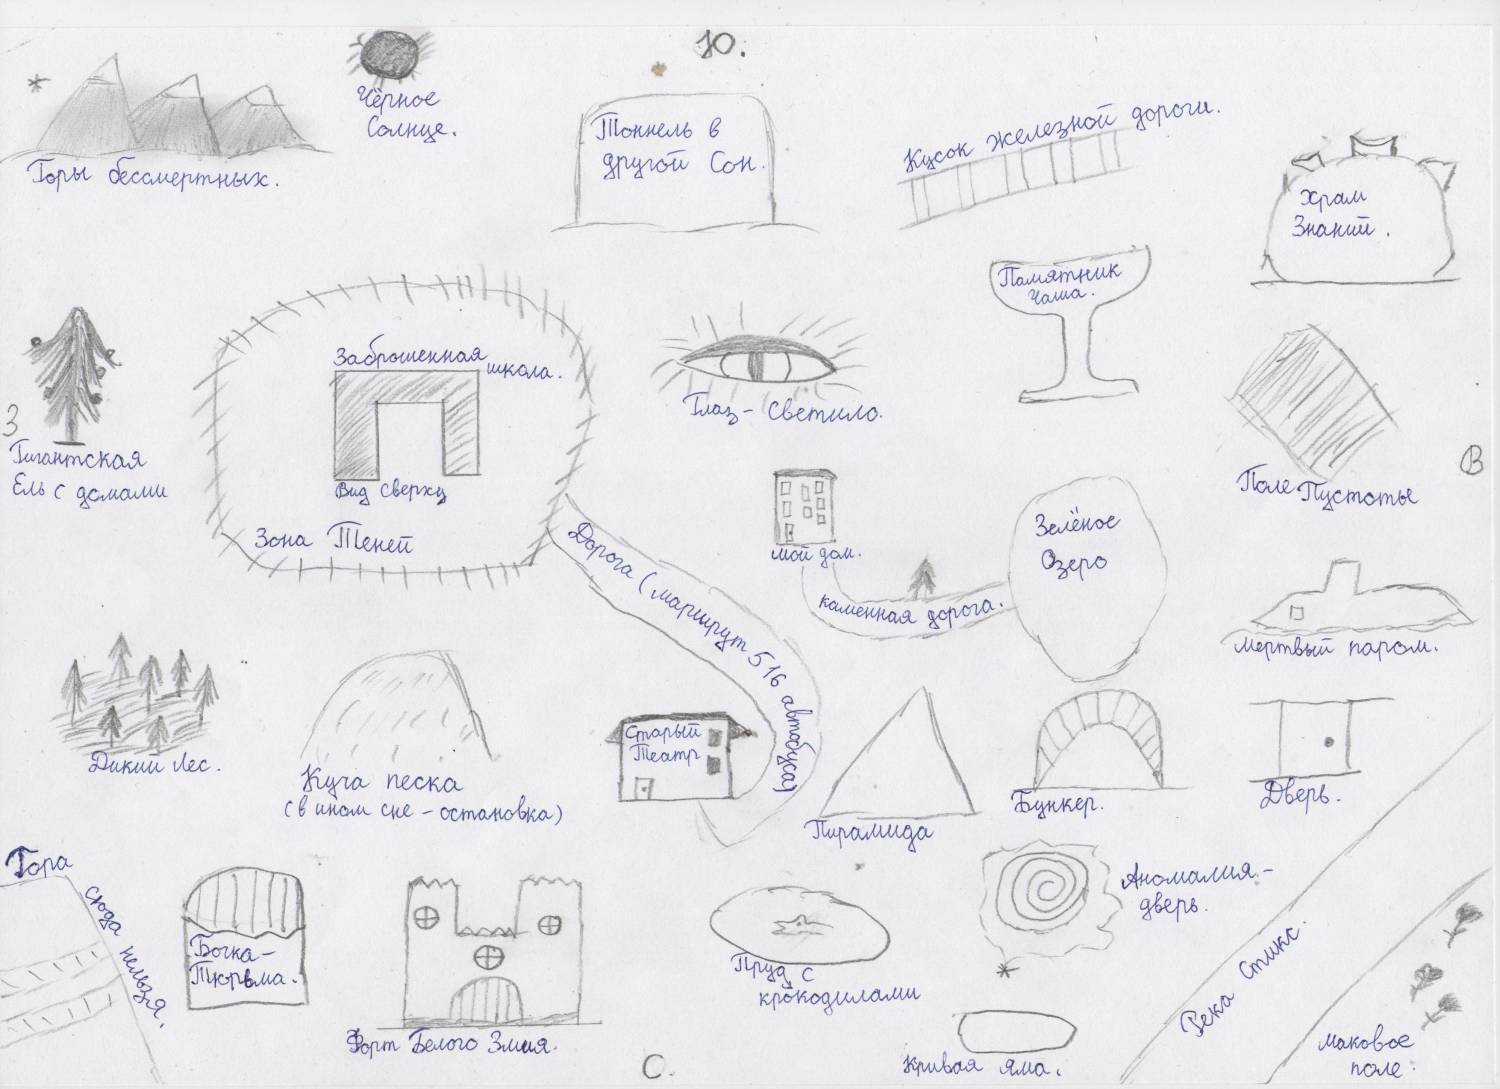 Ю.
Чёрное
Солнце.
Горы бессмертных.
Тоннель в
другой Сон.
Кусок железной дороги.
Храм
Знаний.
Памятник
чаша.
Заброшенная
школа.
Вид сверху
Зона Теней
Глаз - светило.
З
Гигантская
Ель с домами
В
Поле Пустоты
мой дом.
Зелёное
Озеро
каменная дорога.
Дорога (маршрут 516 автобуса)
Мертвый паром.
Дикий лес.
Куча песка
(в ином сне - остановка)
Старый
Театр
Пирамида
Бункер.
Дверь.
Гора
сюда нельзя.
Бочка-
Тюрьма.
Форт Белого Змия.
Пруд с
крокодилами
Аномалия-
дверь.
Река Стикс.
Кривая яма.
Маковое
поле.
С.